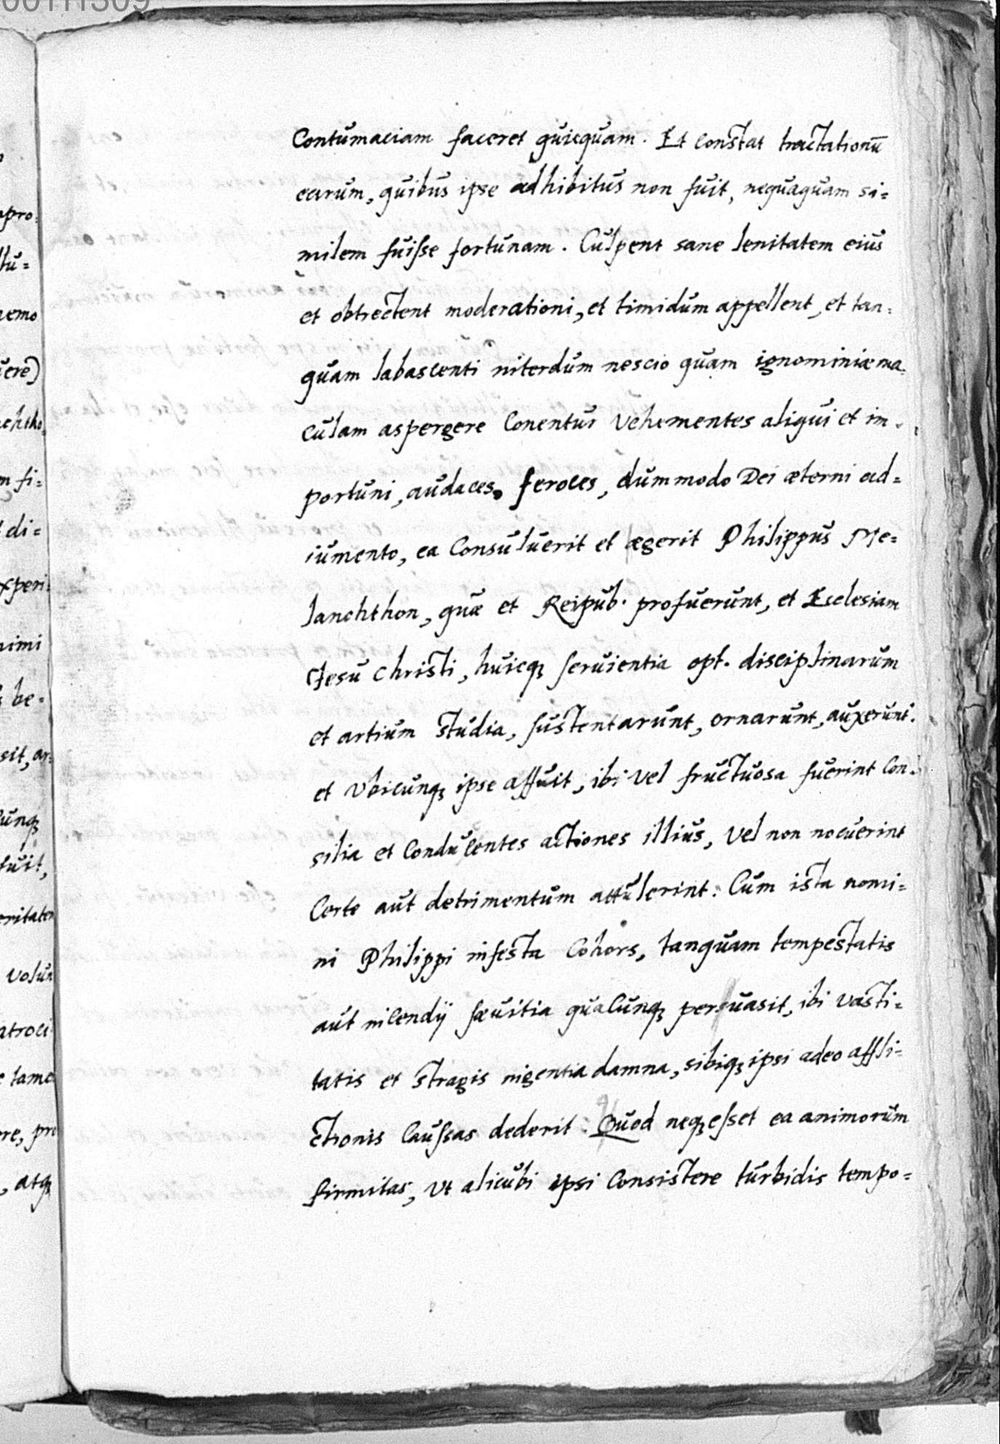 Contumaciam faceret quicquam. Et constat tractationũ
earum, quibus ipse adhibitus non fuit, nequaquam si=
milem fuisse fortunam. Culpent sane lenitatem eius
et obtrectent moderationi, et timidum appellent, et tan=
quam labascenti interdum nescio quam ignominiæ ma=
culam aspergere Conentur vehementes aliqui et im=
portuni, audaces, feroces, dummodo Dei æterni ad=
iumento, ea Consuluerit et egerit Philippus Me=
lanchthon, quæ et Reipub. profuerunt, et Ecclesiam
Jesu Christi, huicq; seruientia opt. disciplinarum
et artium studia, sustentarunt, ornarunt, auxerunt.
et Vbicunq; ipse affuit, ibi vel fructuosa fuerint Con=
silia et Conducentes actiones illius, vel non nocuerint
Certe aut detrimentum attulerint: Cum ista nomi=
ni Philippi infesta Cohors, tanquam tempestatis
aut incendij sævitia quacunq; persuasit, ibi vasti=
tatis et stragis ingentia damna, sibiq; ipsi adeo affli=
ctionis Caussas dederit. Quod neq; esset ea animorum
firmitas, vt alicubi ipsi Consistere turbidis tempo=
apro
tu=
nemo
uere)
chtho
m fi=
di=
xperi
nimi
be=
sit, ar
unq;
fuit,
eritatem
volun
atroci
tame
re, pre
, atq;